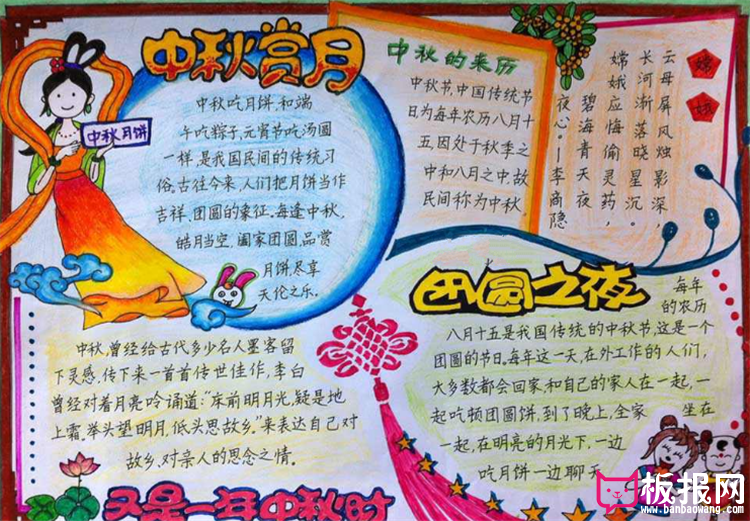 中秋赏月
中秋吃月饼,和端
午吃粽子,元宵节吃汤圆
一样,是我国民间的传统习
俗,古往今来,人们把月饼当作
吉祥、团圆的象征,每逢中秋,
皓月当空,阖家团圆,品赏
月饼,尽享
天伦之乐。
中秋月饼
中秋的来历
中秋节,中国传统节
日为每年农历八月十
五,因处于秋季之
中和八月之中,故
民间称为中秋。
嫦娥
云母屏风烛影深,
长河渐落晓星沉。
嫦娥应悔偷灵药,
碧海青天夜
夜心。—李商隐
中秋,曾经给古代多少名人墨客留
下灵感,传下来一首首传世佳作,李白
曾经对着月亮吟诵道:“床前明月光,疑是地
上霜,举头望明月,低头思故乡。”来表达自己对
故乡、对亲人的思念之情。
团圆之夜
每年
的农历
八月十五是我国传统的中秋节,这是一个
团圆的节日,每年这一天,在外工作的人们,
大多数都会回家,和自己的家人在一起,一
起吃顿团圆饼,到了晚上,全家 坐在
一起,在明亮的月光下,一边
吃月饼一边聊天
又是一年中秋时
板报网
www.banbaowang.com